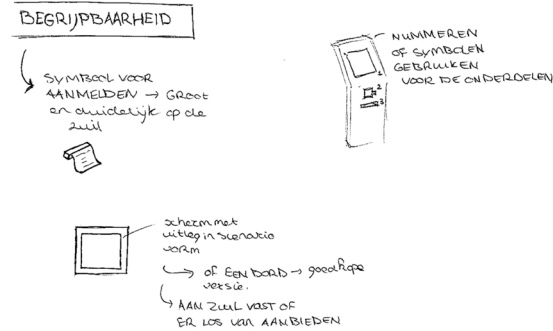 BEGRIJPBAARHEID
SYMBOOL VOOR
AANMELDEN → GROOT
en duidelijk op de
zuil
NUMMEREN
OF SYMBOLEN
GEBRUIKEN
VOOR DE ONDERDELEN
1
2
3
scherm met
uitleg in scenario
vorm
→ OF EEN BORD → goedkope
versie.
→ AAN ZUIL VAST OF
ER LOS VAN AANBIEDEN